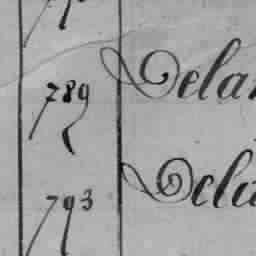 789 Delan
793 Dela